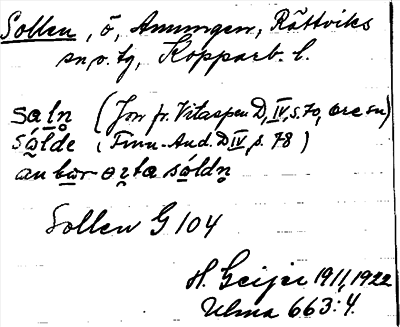 Sollen, ö, Amungen, Rättviks
sn o. tg, Kopparb. l.
sa̱ln̥ (Jon fr. Vitaspen D, IV, s. 70, Ore sn)
sålde (Finn-And. D IV, s. 78)
an bar o̱ta såldn̥
Sollen G 104
H. Geijer 1911, 1922
Ulma 663:4.